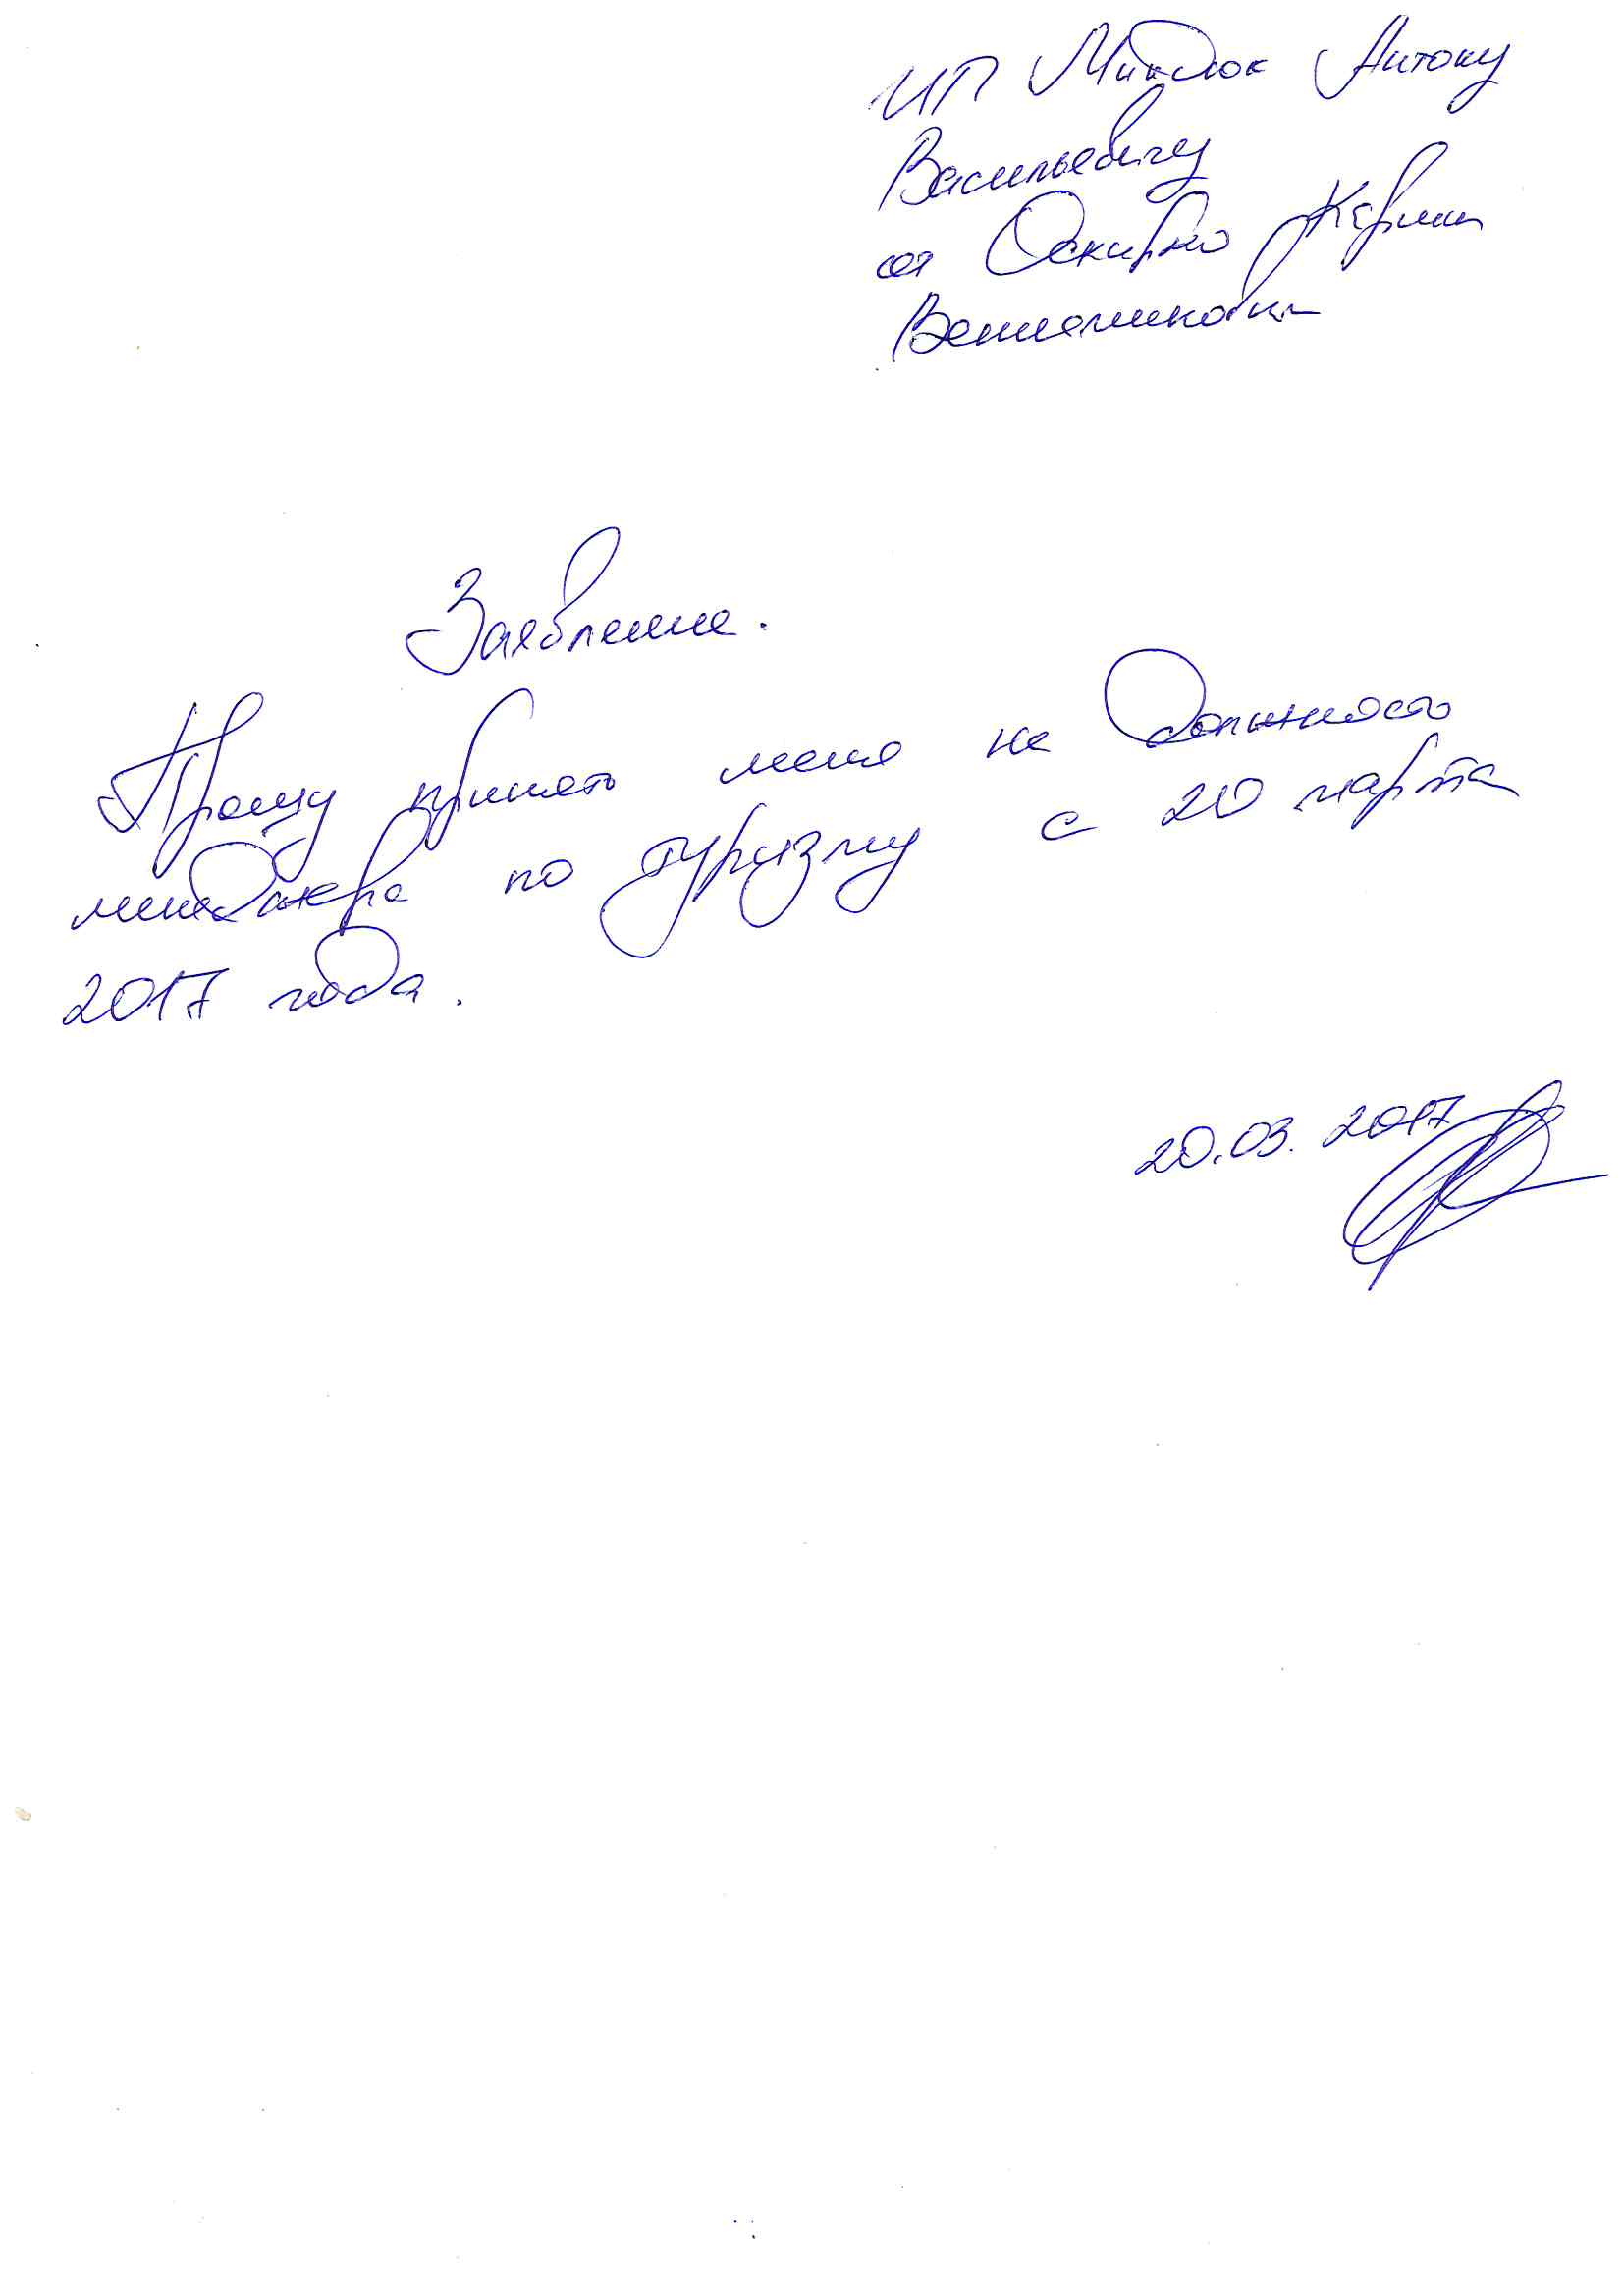 ИП Антону
Васильевичу
от Карины
Вениаминовны
Заявление.
Прошу принять меня на должность
менеджера по туризму с 20 марта
2017 года.
20.03.2017